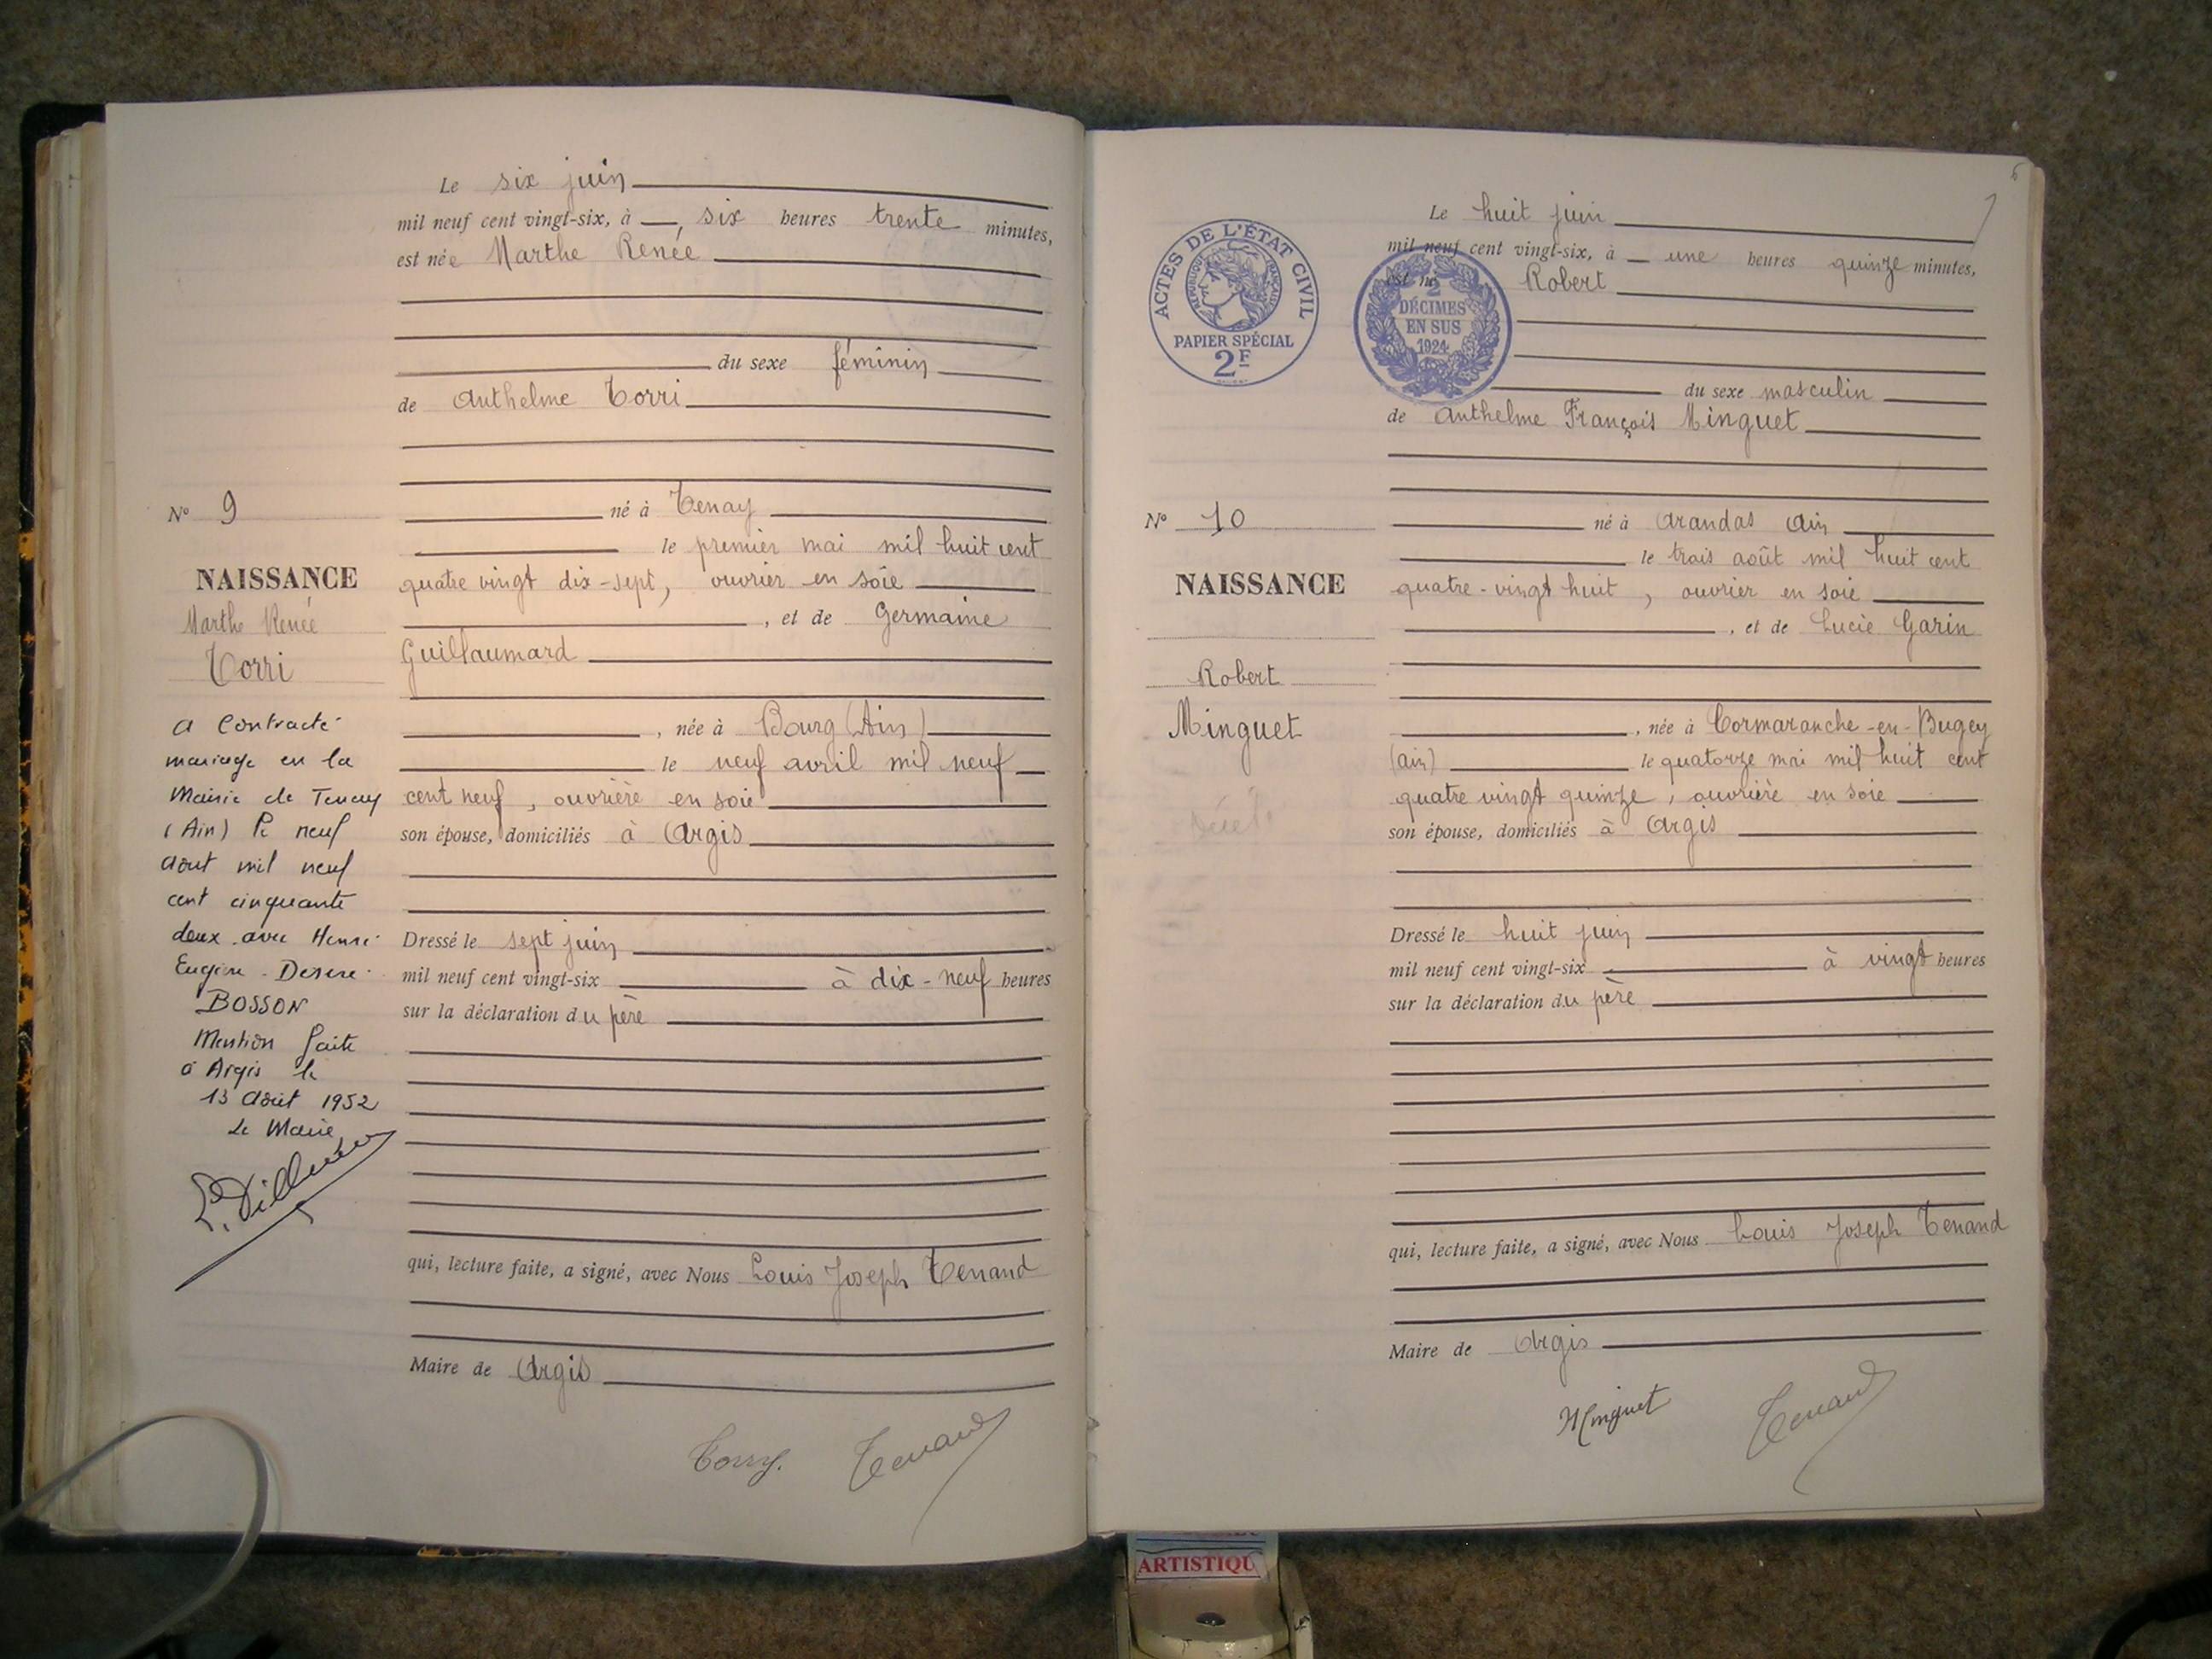 Le six juin
mil neuf cent vingt-six, à six heures trente minutes,
est née Marthe Renée
du sexe féminin
de Anthelme Torri
né à Tenay
le premier mai mil huit cent
quatre vingt dix-sept, ouvrier en soie
, et de Germaine
Guillaumard
, née à Bourg (Ain)
le neuf avril mil neuf
cent neuf, ouvrière en soie
son épouse, domiciliés à Argis
Dressé le sept juin
mil neuf cent vingt-six à dix-neuf heures
sur la déclaration du père
qui, lecture faite, a signé, avec Nous Louis Joseph Tenand
Maire de Argis
Torry. Tenand
N° 9
NAISSANCE
Marthe Renée
Torri
a Contracté
mariage en la
Mairie de Tenay
(Ain) le neuf
Août mil neuf
cent cinquante
deux avec Henri
Eugène Désiré
BOSSON
Mention faite
à Argis le
13 Août 1952
Le Maire
6
ACTES DE L'ÉTAT CIVIL
RÉPUBLIQUE FRANÇAISE
PAPIER SPÉCIAL
2F
2
DÉCIMES
EN SUS
1924
Le huit juin
mil neuf cent vingt-six, à une heures quinze minutes,
est né Robert
du sexe masculin
de Anthelme François Minguet
né à Arandas Ain
le trois août mil huit cent
quatre-vingt huit, ouvrier en soie
, et de Lucie Garin
, née à Cormaranche-en-Bugey
(ain) le quatorze mai mil huit cent
quatre vingt quinze, ouvrière en soie
son épouse, domiciliés à Argis
Dressé le huit juin
mil neuf cent vingt-six à vingt heures
sur la déclaration du père
qui, lecture faite, a signé, avec Nous Louis Joseph Tenand
Maire de Argis
Minguet Tenand
N° 10
NAISSANCE
Robert
Minguet
ARTISTIQU